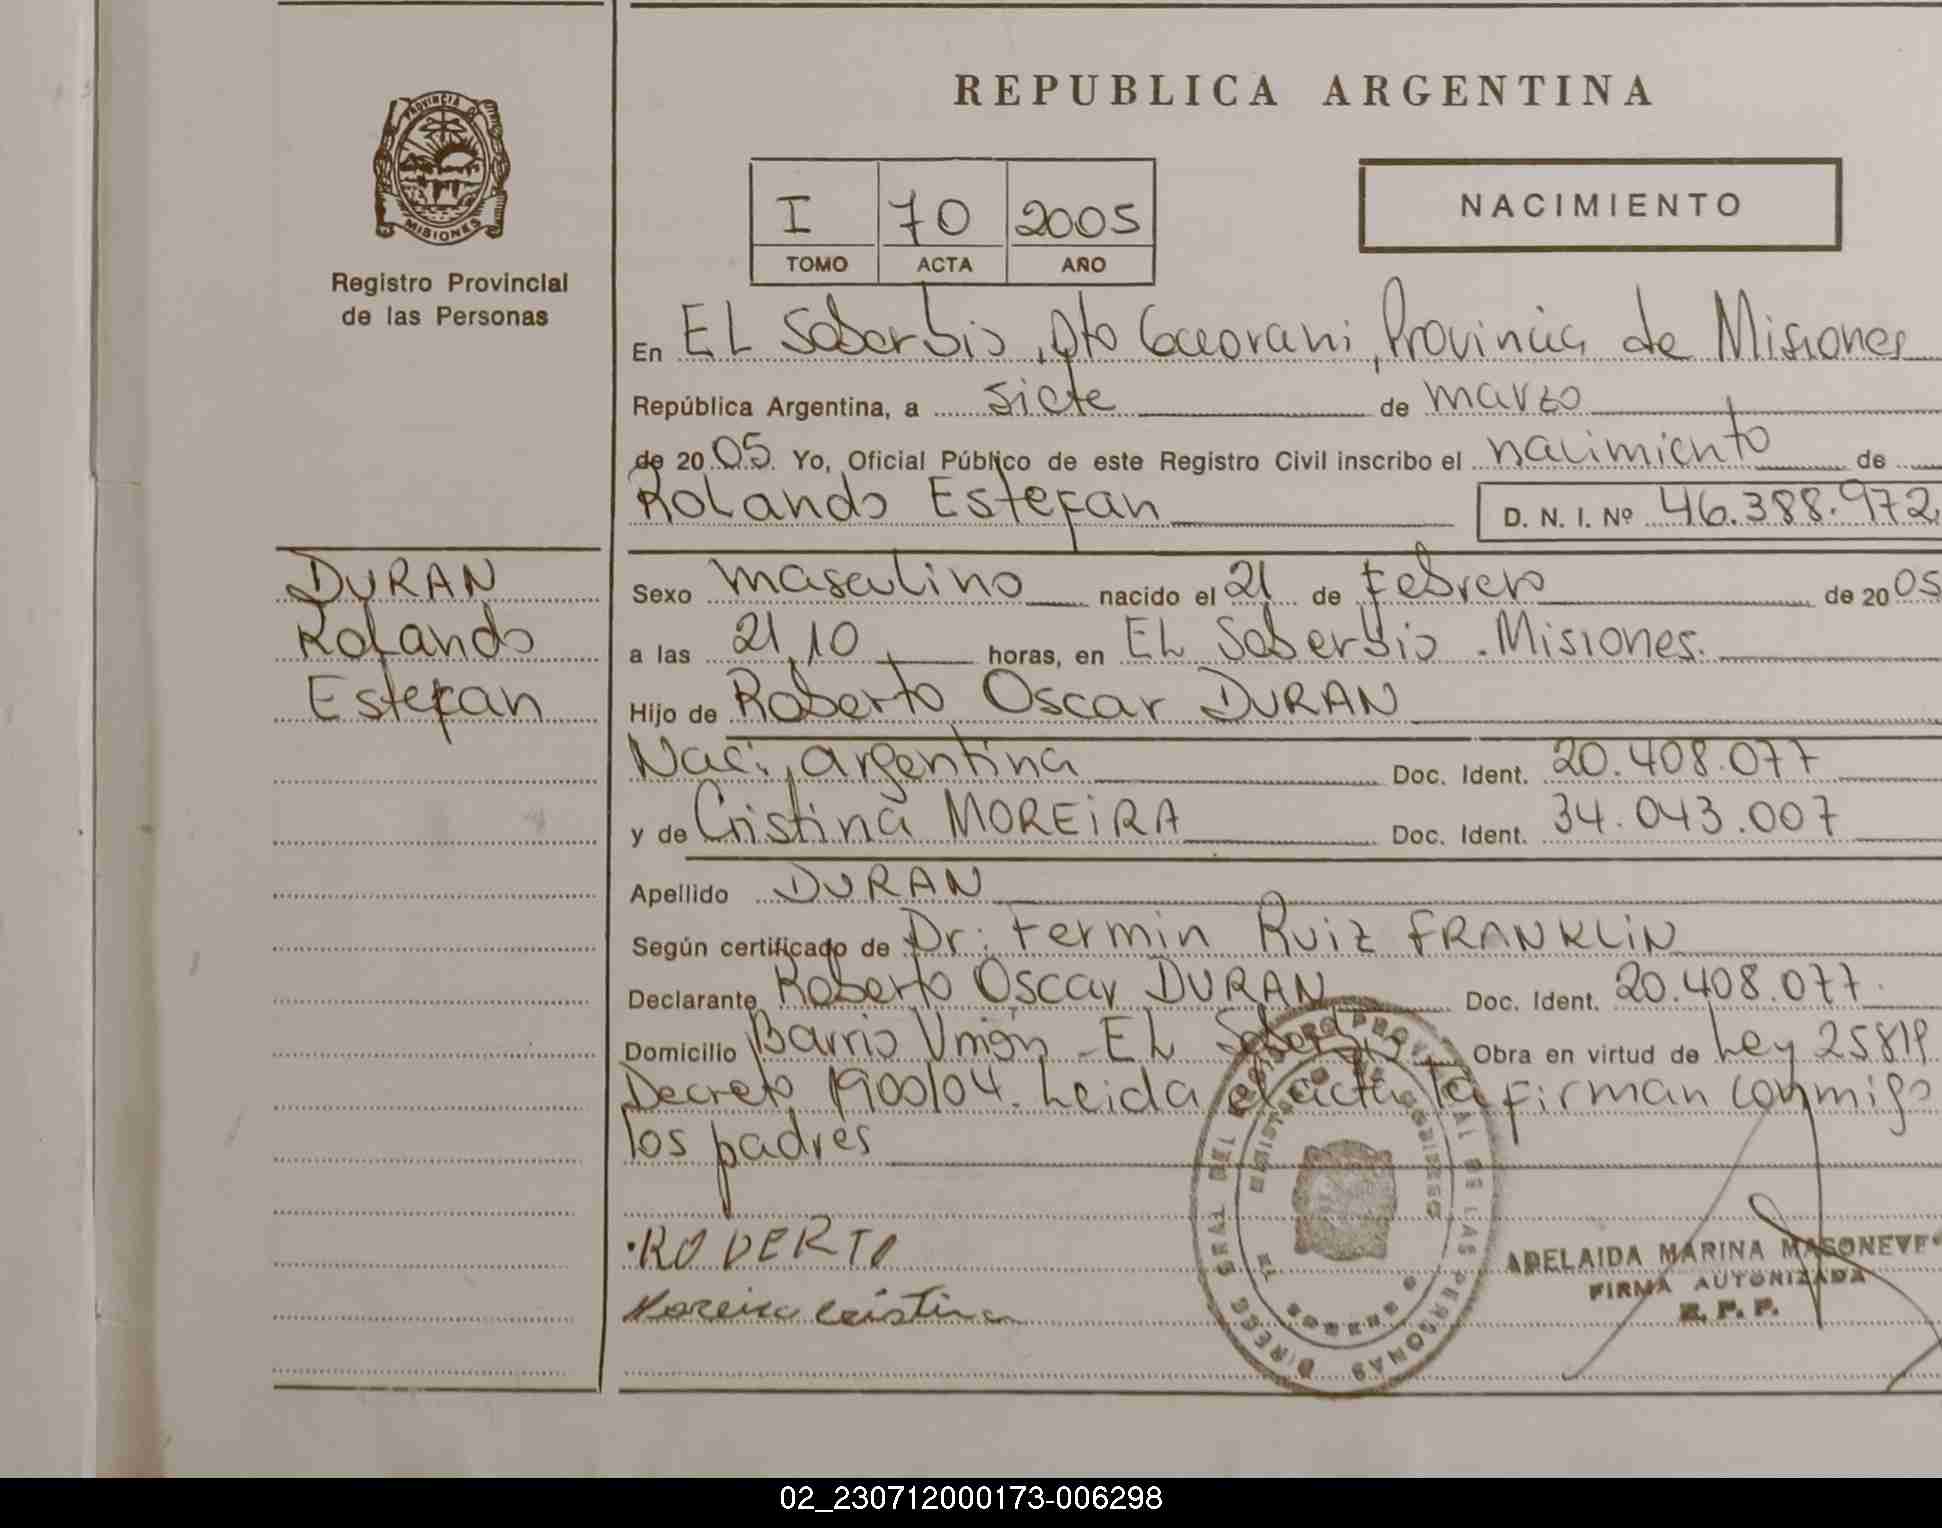 REPUBLICA ARGENTINA
PROVINCIA DE MISIONES
Registro Provincial
de las Personas
I 70 2005
TOMO ACTA AÑO
NACIMIENTO
En EL Soberbio, Dto Guarani, Provincia de Misiones
República Argentina, a siete de marzo
de 2005. Yo, Oficial Público de este Registro Civil inscribo el nacimiento de
Rolando Estefan D. N. I. Nº 46.388.972
DURAN
Rolando
Estefan
Sexo masculino nacido el 21 de Febrero de 2005
a las 21,10 horas, en EL Soberbio - Misiones.
Hijo de Roberto Oscar DURAN
Naci, argentina Doc. Ident. 20.408.077
y de Cristina MOREiRA Doc. Ident. 34.043.007
Apellido DURAN
Según certificado de Dr: Fermin Ruiz FRANKLiN
Declarante Roberto Oscar DURAN Doc. Ident. 20.408.077.
Domicilio Barrio Unión - EL Soberbio Obra en virtud de Ley 25819
Decreto 1900/04. Leida el acta la firman conmigo
los padres
ROVERTO
Moreira Cristina
DIREC. GRAL DEL REGISTRO PROVINCIAL DE LAS PERSONAS
MINISTERIO DE GOBIERNO
EL SOBERBIO
ADELAIDA MARINA
FIRMA AUTORIZADA
R. P. P.
02_230712000173-006298